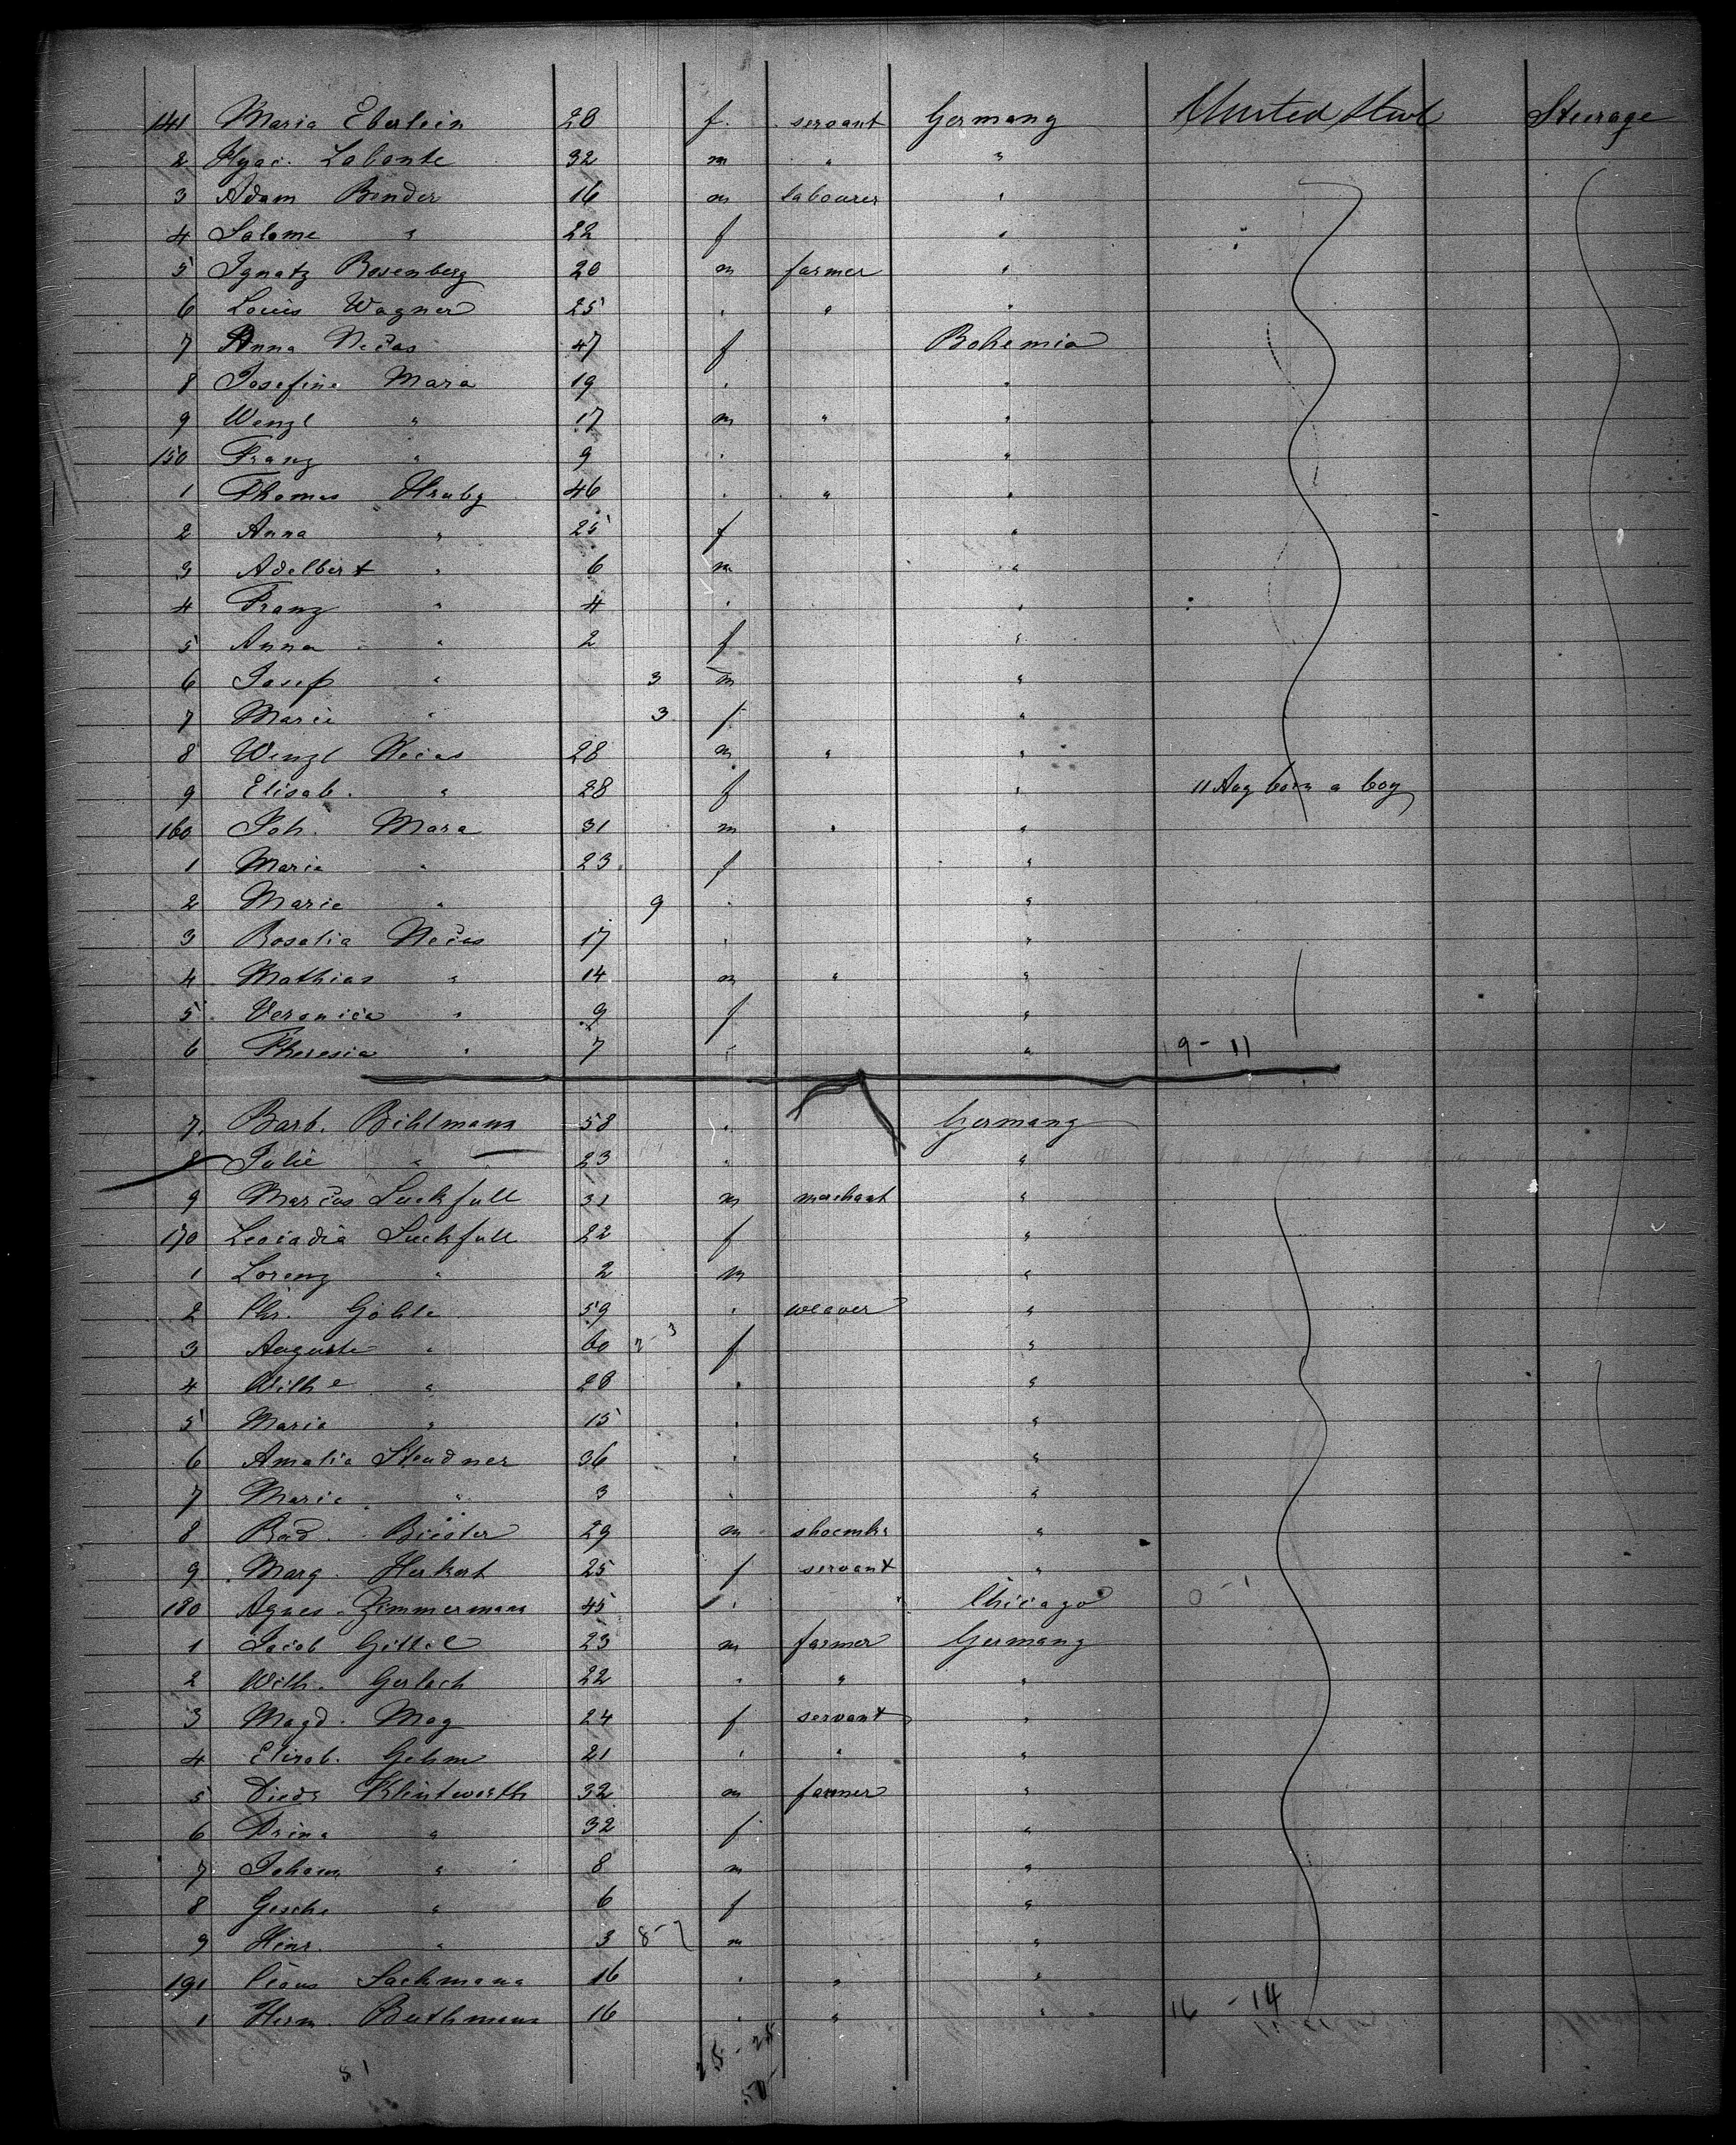 141 Maria Eberlein 28 f. servant Germany United Stat Steerage
2 Hyac. Labonte 32 m " "
3 Adam Bender 16 m labourer "
4 Salome " 22 f "
5 Ignatz Rosenberg 20 m farmer "
6 Louis Wagner 25 " " "
7 Anna Nečas 47 f Bohemia
8 Josefine Mara 19 " "
9 Wenzl " 17 m " "
150 Franz " 9 " "
1 Thomas Hruby 46 " " "
2 Anna " 25 f "
3 Adelbert " 6 m "
4 Franz " 4 " "
5 Anna " 2 f "
6 Josef " 3 m "
7 Marie " 3 f "
8 Wenzl Nečas 28 m " "
9 Elisab. " 28 f " 11 Aug born a boy
160 Joh. Mara 31 m " "
1 Marie " 23 f "
2 Marie " 9 " "
3 Rosalia Nečas 17 " "
4 Mathias " 14 m " "
5 Veronica " 9 f "
6 Theresia " 7 " " 19 - 11
7. Barb. Bihlmann 58 " Germany
8 Julie " 23 " "
9 Marcus Luckfull 31 m merchant "
170 Leocadia Luckfull 22 f "
1 Lorenz " 2 m "
2 Chr. Göhle 59 " weaver "
3 Auguste " 60 2-3 f "
4 Wilhe " 28 " "
5 Marie " 15 " "
6 Amalia Steudner 36 " "
7 Marie " 3 " "
8 Rud. Biester 29 m shoemkr "
9 Marg. Herkert 25 f servant "
180 Agnes Zimmermann 45 " Chicago 0-1
1 Jacob Gittel 23 m farmer Germany
2 Wilh. Gerlach 22 " " "
3 Magd. May 24 f servant "
4 Elisab. Gehm 21 " " "
5 Diedr Klintworth 32 m farmer "
6 Trina " 32 f "
7 Johann " 8 m "
8 Gesche " 6 f "
9 Hinr. " 3 8-7 m "
191 Claus Sackmann 16 " " "
1 Herm. Buthmann 16 " " " 16 - 14
51 25 - 25
50